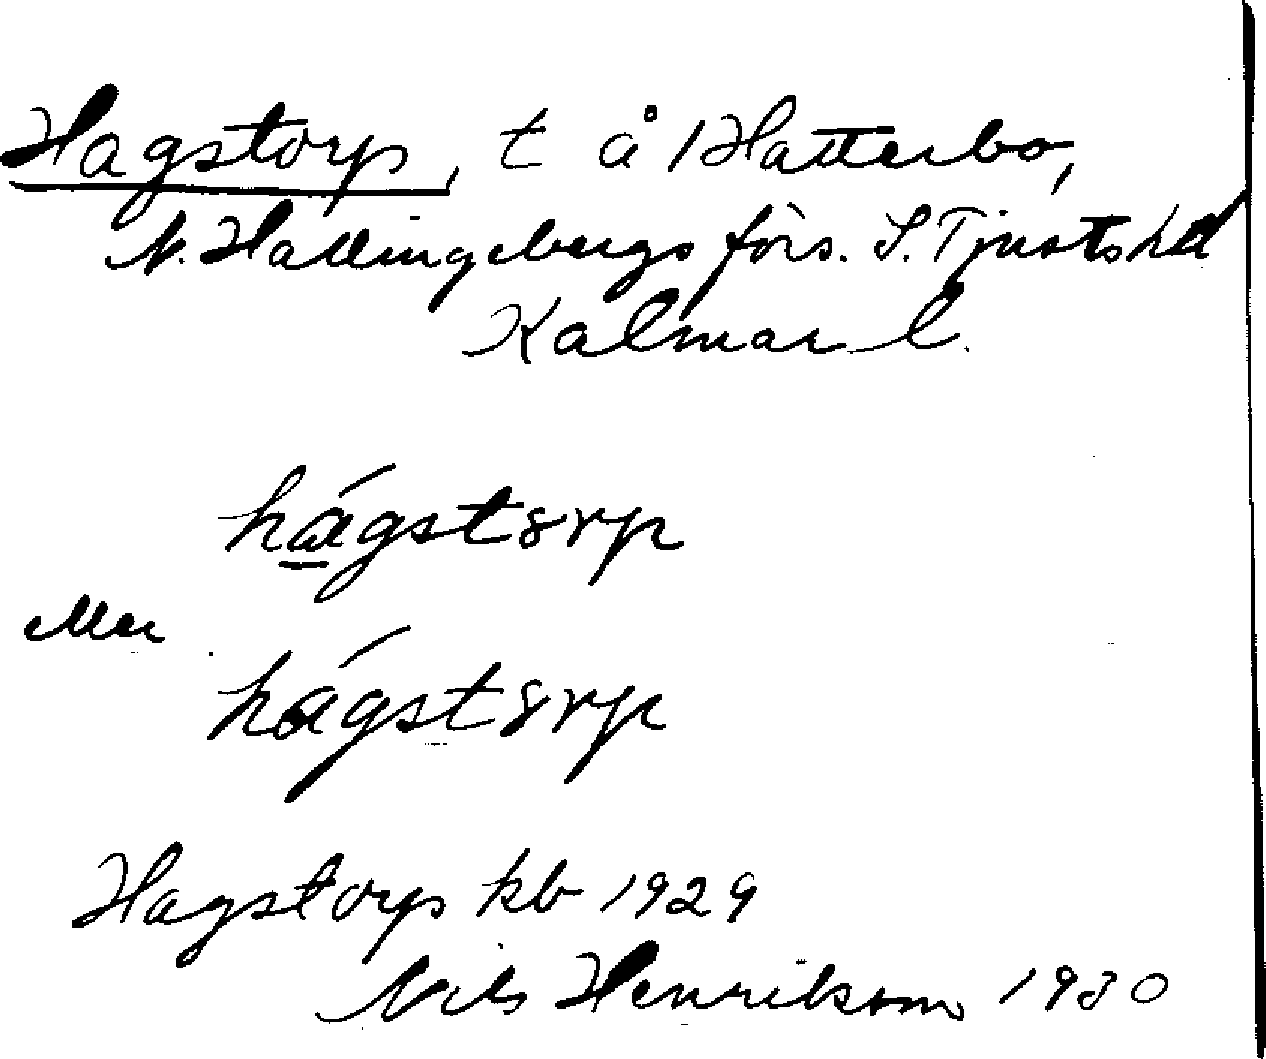 Hagstorp, t å 1 Hatterbo,
N. Hallingebergs förs. S. Tjusts hd
Kalmar l.
hágstȣrp
eller
hágstȣrp
Hagstorp kb 1929
Nils Henrikson 1930